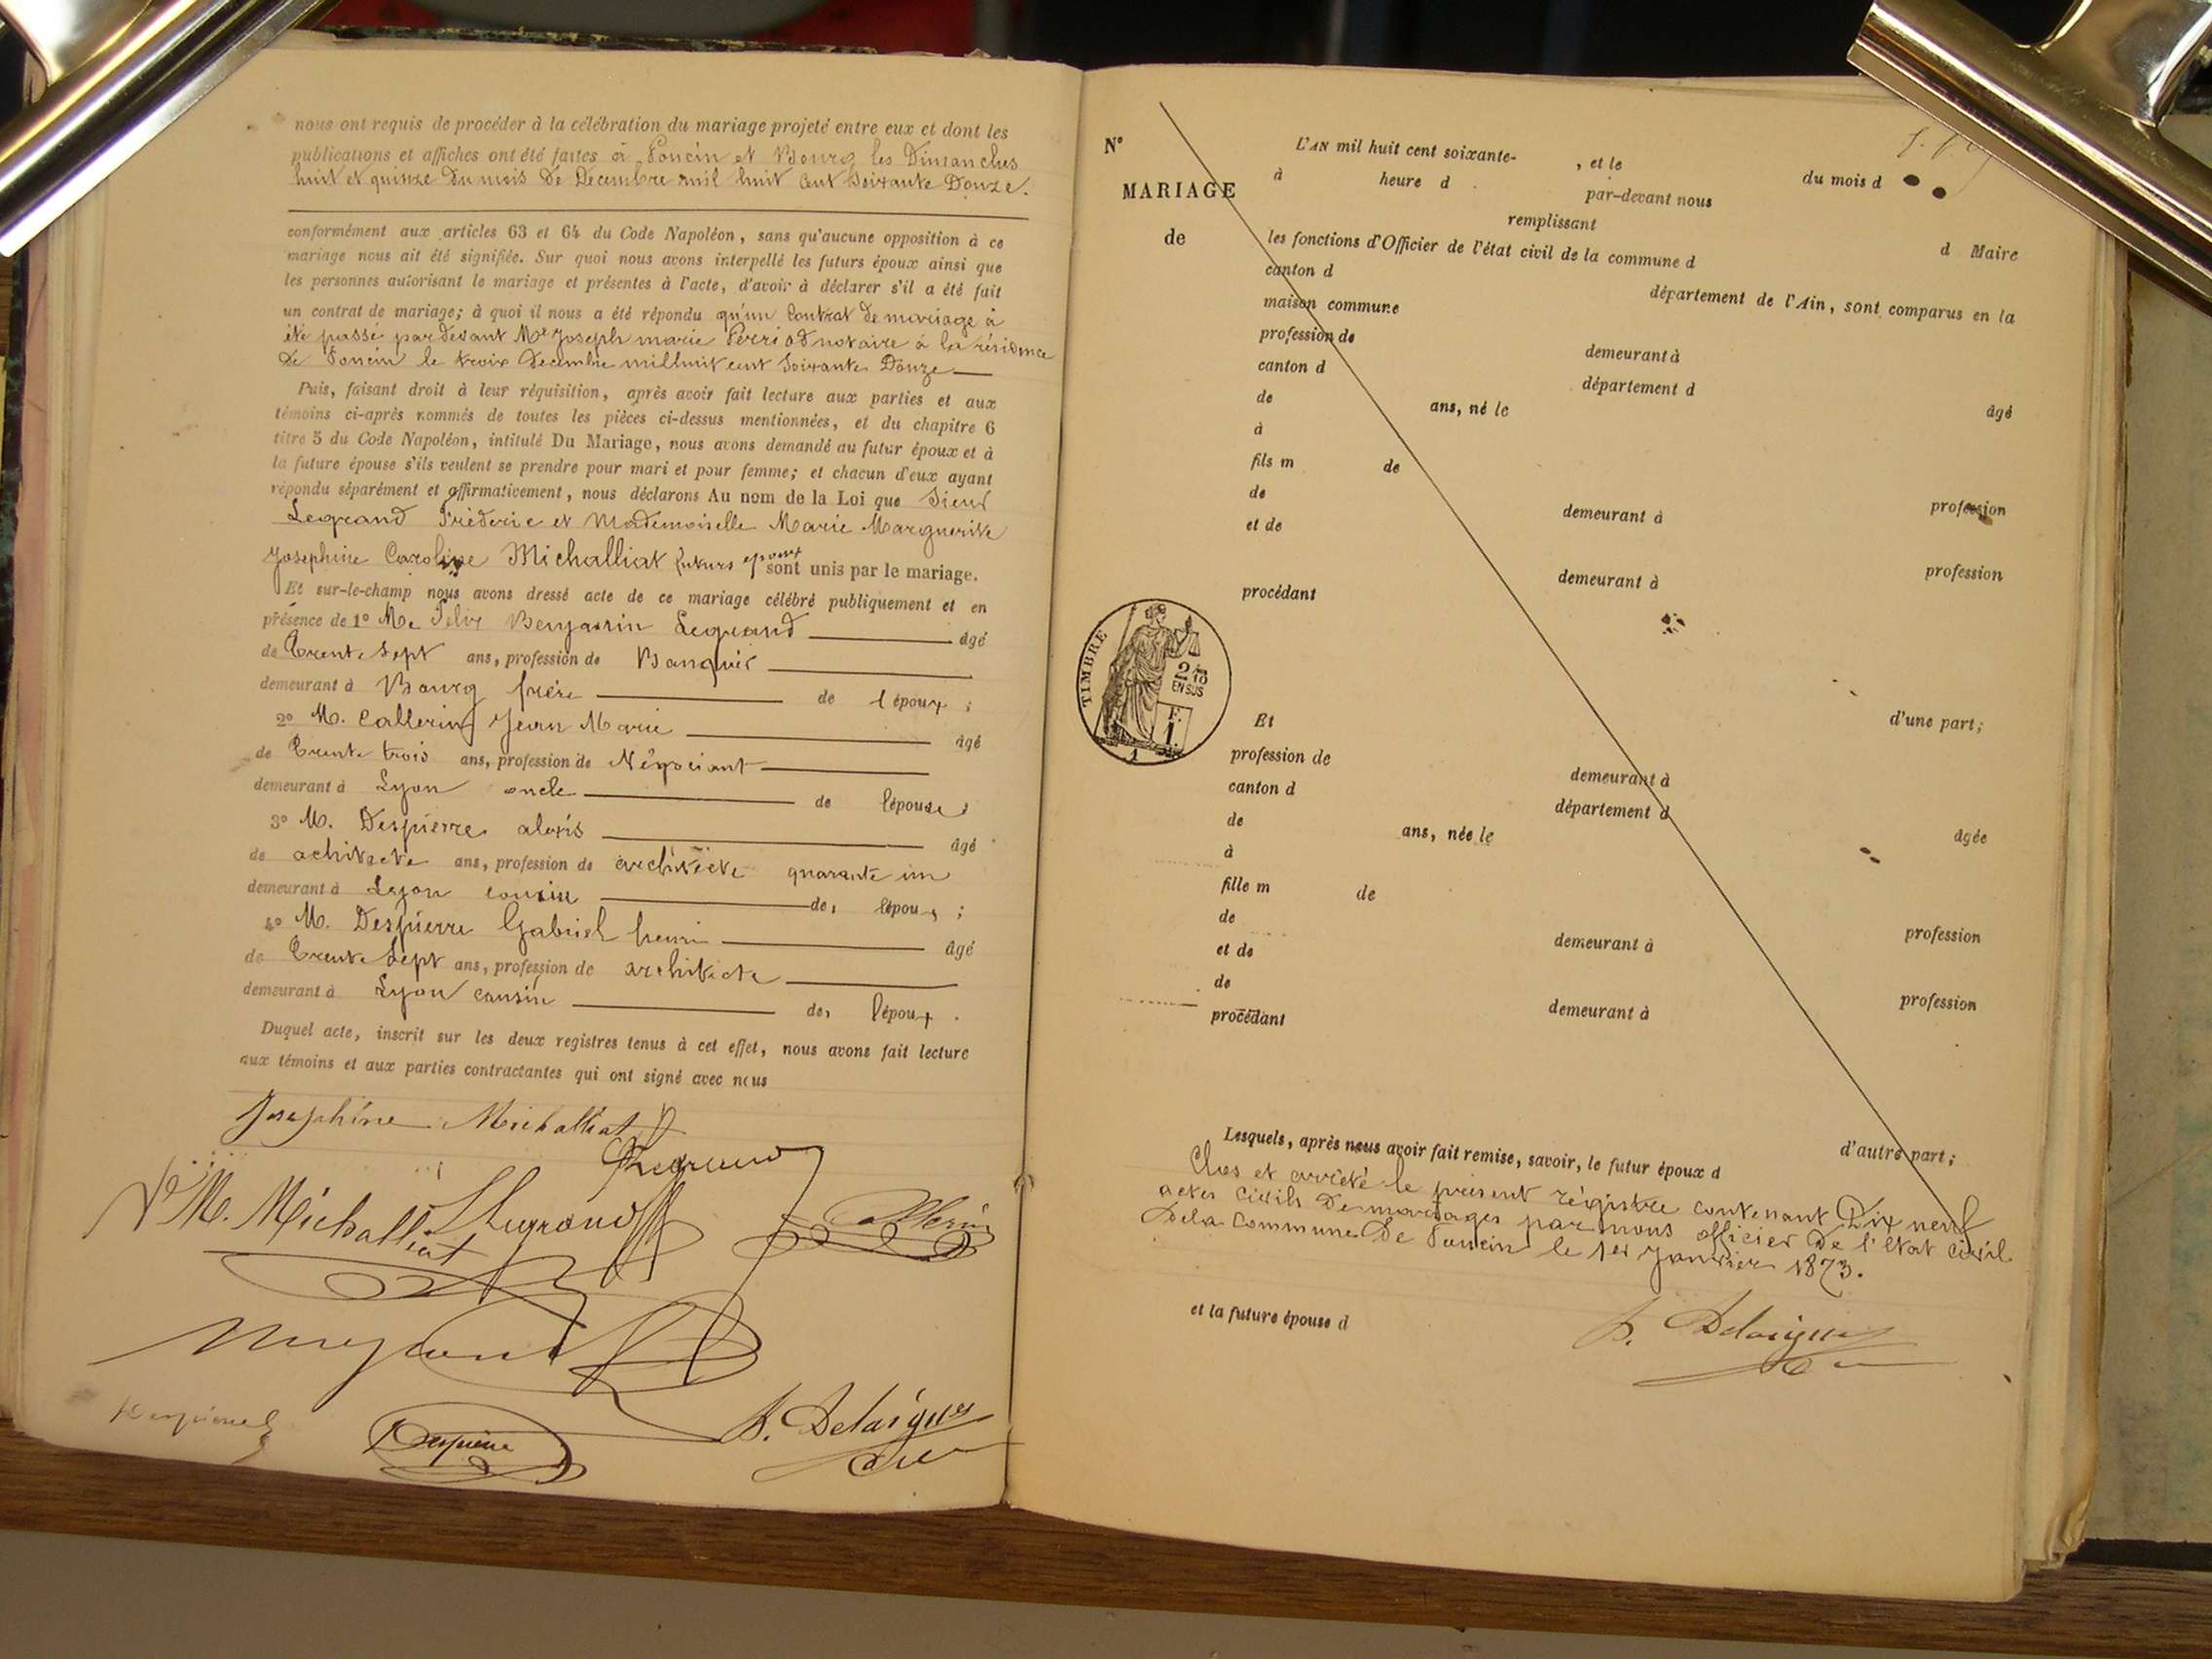 nous ont requis de procéder à la célébration du mariage projeté entre eux et dont les
publications et affiches ont été faites à Poncin et Bourg les Dimanches
huit et quinze du mois de Décembre mil huit cent soixante Douze.
conformément aux articles 63 et 64 du Code Napoléon, sans qu'aucune opposition à ce
mariage nous ait été signifiée. Sur quoi nous avons interpellé les futurs époux ainsi que
les personnes autorisant le mariage et présentes à l'acte, d'avoir à déclarer s'il a été fait
un contrat de mariage; à quoi il nous a été répondu qu'un Contrat de mariage à
été passé par devant Me Joseph marie Perriod notaire à la résidence
de Poncin le trois Decembre mil huit cent soixante Douze
Puis, faisant droit à leur réquisition, après avoir fait lecture aux parties et aux
témoins ci-après nommés de toutes les pièces ci-dessus mentionnées, et du chapitre 6
titre 5 du Code Napoléon, intitulé Du Mariage, nous avons demandé au futur époux et à
la future épouse s'ils veulent se prendre pour mari et pour femme; et chacun d'eux ayant
répondu séparément et affirmativement, nous déclarons Au nom de la Loi que Sieur
Legrand Fréderic et Mademoiselle Marie Marguerite
Josephine Caroline Michalliat futurs époux sont unis par le mariage.
Et sur-le-champ nous avons dressé acte de ce mariage célébré publiquement et en
présence de 1° Mr Felix Benjamin Legrand âgé
de Trente sept ans, profession de Banquier
demeurant à Bourg frère de l époux ;
2° M. Callerin Jean Marie âgé
de Trente trois ans, profession de Négociant
demeurant à Lyon oncle de lépouse ;
3° M. Despierre alexis âgé
de achitecte ans, profession de architecte quarante un
demeurant à Lyon cousin de, lépoux ;
4° M. Despierre Gabriel henri âgé
de Trente Sept ans, profession de architecte
demeurant à Lyon cousin de, lépoux .
Duquel acte, inscrit sur les deux registres tenus à cet effet, nous avons fait lecture
aux témoins et aux parties contractantes qui ont signé avec nous
Josephine Michalliat
Legrand
M. Michalliat Legrand Callerin
Despierre Despierre Delaigue
N° L'AN mil huit cent soixante- , et le du mois d
à heure d par-devant nous
MARIAGE remplissant
de les fonctions d'Officier de l'état civil de la commune d d Maire
canton d département de l'Ain, sont comparus en la
maison commune
profession de demeurant à
canton d département d
de ans, né le âgé
à
fils m de
de demeurant à profession
et de
demeurant à profession
procédant
TIMBRE
2/10
EN SUS
F.
1.
1
Et d'une part;
profession de demeurant à
canton d département d
de ans, née le âgée
à
fille m de
de demeurant à profession
et de
de demeurant à profession
procédant
d'autre part;
Lesquels, après nous avoir fait remise, savoir, le futur époux d
Clos et arrêté le présent régistre contenant Dix neuf
actes civils De mariages par nous officier De l'état civil
De la commune De Poncin le 1er Janvier 1873.
et la future épouse d
Delaigue